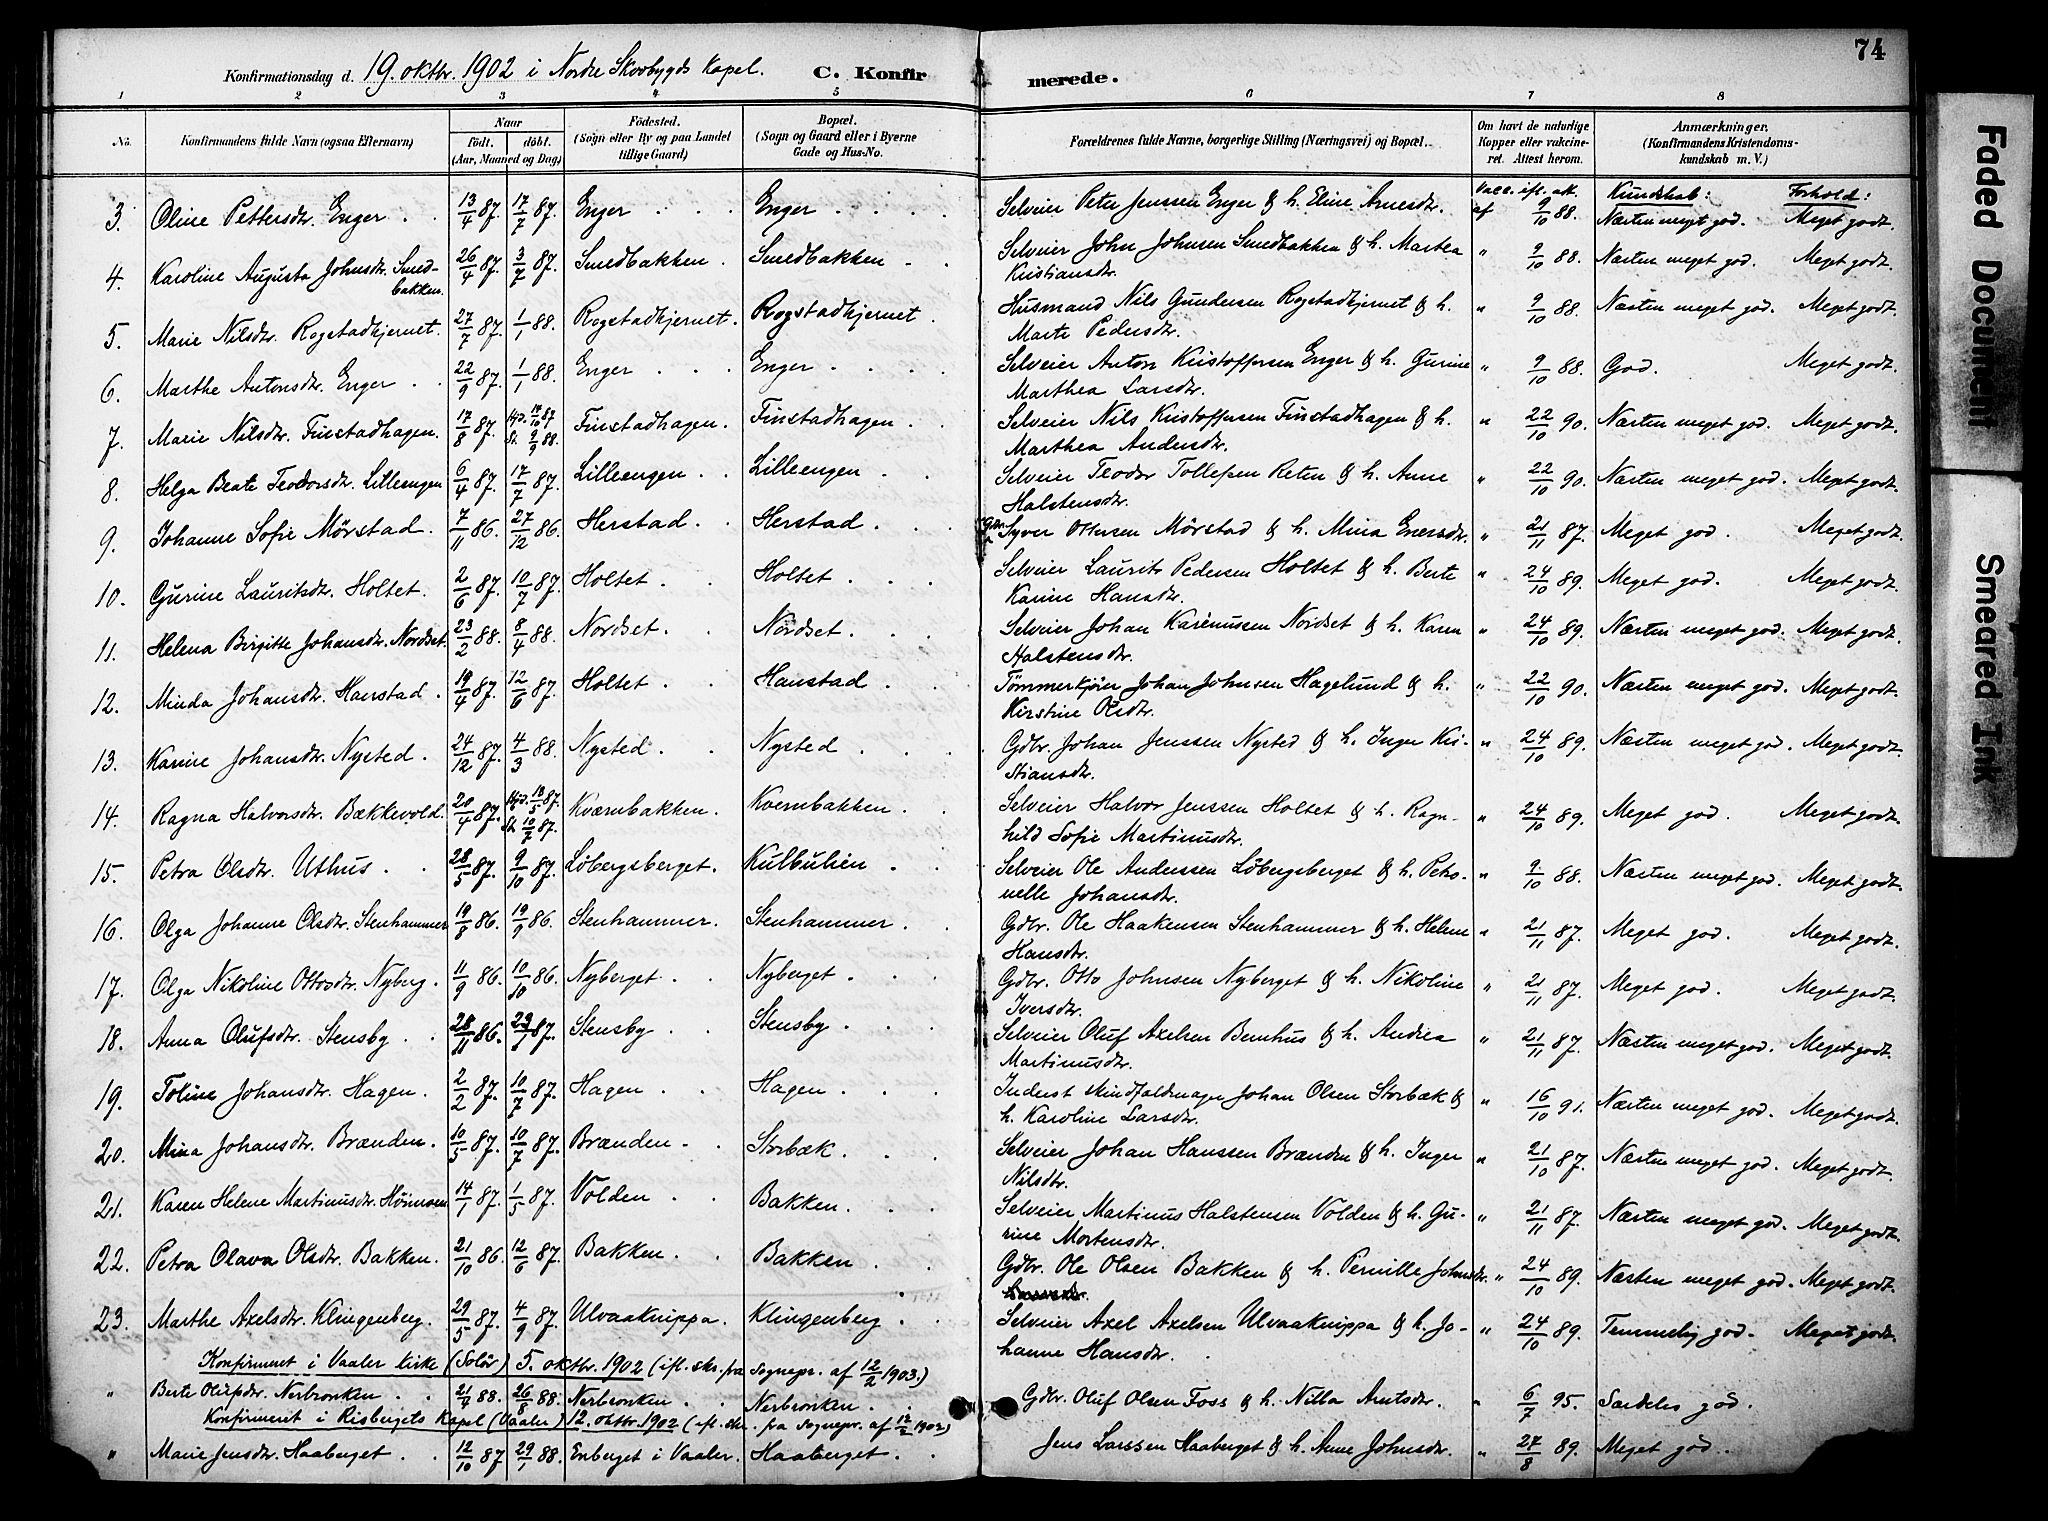 74
Konfirmationsdag d. 19. oktbr. 1902 i Nordre Skovbygds Kapel. C. Konfirmerede.
1 2 3 4 5 6 7 8
No. Konfirmandens fulde Navn (ogsaa Efternavn) Naar Født. døbt. (Aar, Maaned og Dag) Fødested. (Sogn eller By og paa Landet tillige Gaard) Bopæl. (Sogn og Gaard eller i Byerne Gade og Hus-No. Forældrenes fulde Navne, borgerlige Stilling (Næringsvei) og Bopæl. Om havt de naturlige Kopper eller vaccineret. Attest herom. Anmærkninger. (Konfirmandens Kristendomskundskab m. V.)
Vacc. ifl. att. Kundskab: Forhold:
3. Oline Pettersdtr. Enger 13/4 87. 17/7 87. Enger Enger Selveier Peter Jenssen Enger & h. Eline Arnesdtr. af 9/10 88. Næsten meget god. Meget godt.
4. Karoline Augusta Johnsdtr. Smedbakken. 26/4 87. 3/7 87. Smedbakken. Smedbakken Selveier John Johnsen Smedbakken & h. Marthea Kristiansdtr. " 9/10 88. Næsten meget god. Meget godt.
5. Marie Nilsdtr. Rogstadkjernet. 27/7 87. 1/1 88. Rogstadkjernet. Rogstadkjernet. Husmand Nils Gundersen Rogstadkjernet & h. Marte Pedersdtr. " 9/10 88. Næsten meget god. Meget godt.
6. Marthe Antonsdtr. Enger 22/9 87. 1/1 88. Enger Enger Selveier Anton Kristoffersen Enger & h. Gurine Marthea Larsdtr. " 9/10 88. God. Meget godt.
7. Marie Nilsdtr. Finstadhagen. 17/8 87. Hjd. 17/10 87 St. 9/9 88. Finstadhagen. Finstadhagen Selveier Nils Kristoffersen Finstadhagen & h. Marthea Andersdtr. " 22/10 90. Næsten meget god. Meget godt.
8. Helga Beate Teodorsdtr. Lilleengen 6/4 87. 17/7 87. Lilleengen Lilleengen Selveier Teodor Tollefsen Reten & h. Anne Halstensdtr. " 22/10 90. Næsten meget god. Meget godt.
9. Johanne Sofie Mørstad. 7/11 86. 27/12 86. Herstad. Herstad Syver Ottersen Mørstad & h. Mina Enersdtr. " 21/11 87. Meget god. Meget godt.
10. Gurine Lauritsdtr. Holtet. 2/6 87. 10/7 87. Holtet. Holtet Selveier Laurits Pedersen Holtet & h. Berte Karine Hansdtr. " 24/10 89. Meget god. Meget godt.
11. Helena Birgitte Johansdtr. Nordset. 23/2 88. 8/4 88. Nordset. Nordset. Selveier Johan Karenussen Nordset & h. Karen Halstensdtr. " 24/10 89. Næsten meget god. Meget godt.
12. Minda Johansdtr. Hanstad. 19/4 87. 12/6 87. Holtet. Hanstad Tømmerkjører Johan Johnsen Hagelund & h. Kirstine Olsdtr. " 22/10 90. Næsten meget god. Meget godt.
13. Karine Johansdtr. Nysted. 24/12 87. 4/3 88. Nysted. Nysted Gdbr. Johan Jenssen Nysted & h. Inger Kristiansdtr. " 24/10 89. Næsten meget god. Meget godt.
14. Ragna Halvorsdtr. Bækkevold. 20/4 87. Hjd. 18/5 87. St. 10/7 87. Kværnbakken. Kvernbakken. Selveier Halvor Jenssen Holtet & h. Ragnhild Sofie Martinusdtr. " 24/10 89. Meget god. Meget godt.
15. Petra Olsdtr. Uthus. 28/5 87. 9/10 87. Løbergsberget. Kulbulien Selveier Ole Anderssen Løbergsberget & h. Petronelle Johansdtr. " 9/10 88. Næsten meget god. Meget godt.
16. Olga Johanne Olsdtr. Stenhammer 19/8 86. 19/9 86. Stenhammer. Stenhammer. Gdbr. Ole Haakensen Stenhammer & h. Helene Hansdtr. " 21/11 87. Meget god. Meget godt.
17. Olga Nikoline Ottosdtr. Nyberg. 11/9 86. 10/10 86. Nyberget Nyberget Gdbr. Otto Johnsen Nyberget & h. Nikoline Iversdtr. " 21/11 87. Meget god. Meget godt.
18. Anna Olufsdtr. Stensby 28/11 86. 23/1 87. Stensby Stensby Selveier Oluf Axelsen Bernhus & h. Andrea Martinusdtr. " 21/11 87. Næsten meget god. Meget godt.
19. Toline Johansdtr. Hagen. 2/2 87. 10/7 87. Hagen Hagen. Inderst skindfældmager Johan Olsen Storbæk & h. Karoline Larsdtr. " 16/10 91. Næsten meget god. Meget godt.
20. Mina Johansdtr. Brænden. 10/5 87. 10/7 87. Brænden Storbæk Selveier Johan Hanssen Brænden & h. Inger Nilsdtr. " 21/10 87. Næsten meget god. Meget godt.
21. Karen Helene Martinusdtr. 14/1 87. 1/5 87. Volden Bakken. Selveier Martinus Halstensen Volden & h. Gurine Mortensdtr. " 21/11 87. Næsten meget god. Meget godt.
22. Petra Olava Olsdtr. Bakken. 21/10 86. 12/6 87. Bakken. Bakken Gdbr. Ole Olsen Bakken & h. Pernille Johnsdtr. " 24/10 89. Næsten meget god. Meget godt.
23. Marthe Axelsdtr. Klingenberg. 29/5 87. 4/9 87. Ulvaaknippa. Klingenberg. Selveier Axel Axelsen Ulvaaknippa & h. Johanne Hansdtr. " 24/10 89. Temmelig god. Meget godt.
Konfirmeret i Vaaler kirke (Solør) 5. oktbr. 1902 (ifl. skr. fra Sognepr. af 12/2 1903.)
" Berte Olufsdtr. Nerbronken 21/4 88. 26/8 88. Nerbronken Nerbronken. Gdbr. Oluf Olsen Foss & h. Nilla Arntsdtr. " 6/7 95. Særdeles god.
Konfirmeret i Risbergets Kapel (Vaaler) 12. oktbr. 1902 (ifl. skr. fra Sognepr. af 12/2 1903)
" Marie Jensdtr. Haaberget 12/10 87 29/1 88. Enberget i Vaaler. Haaberget. Jens Larssen Haaberget & h. Anne Johnsdtr. " 27/8 89. Meget god.
Faded Document
Smeared Ink